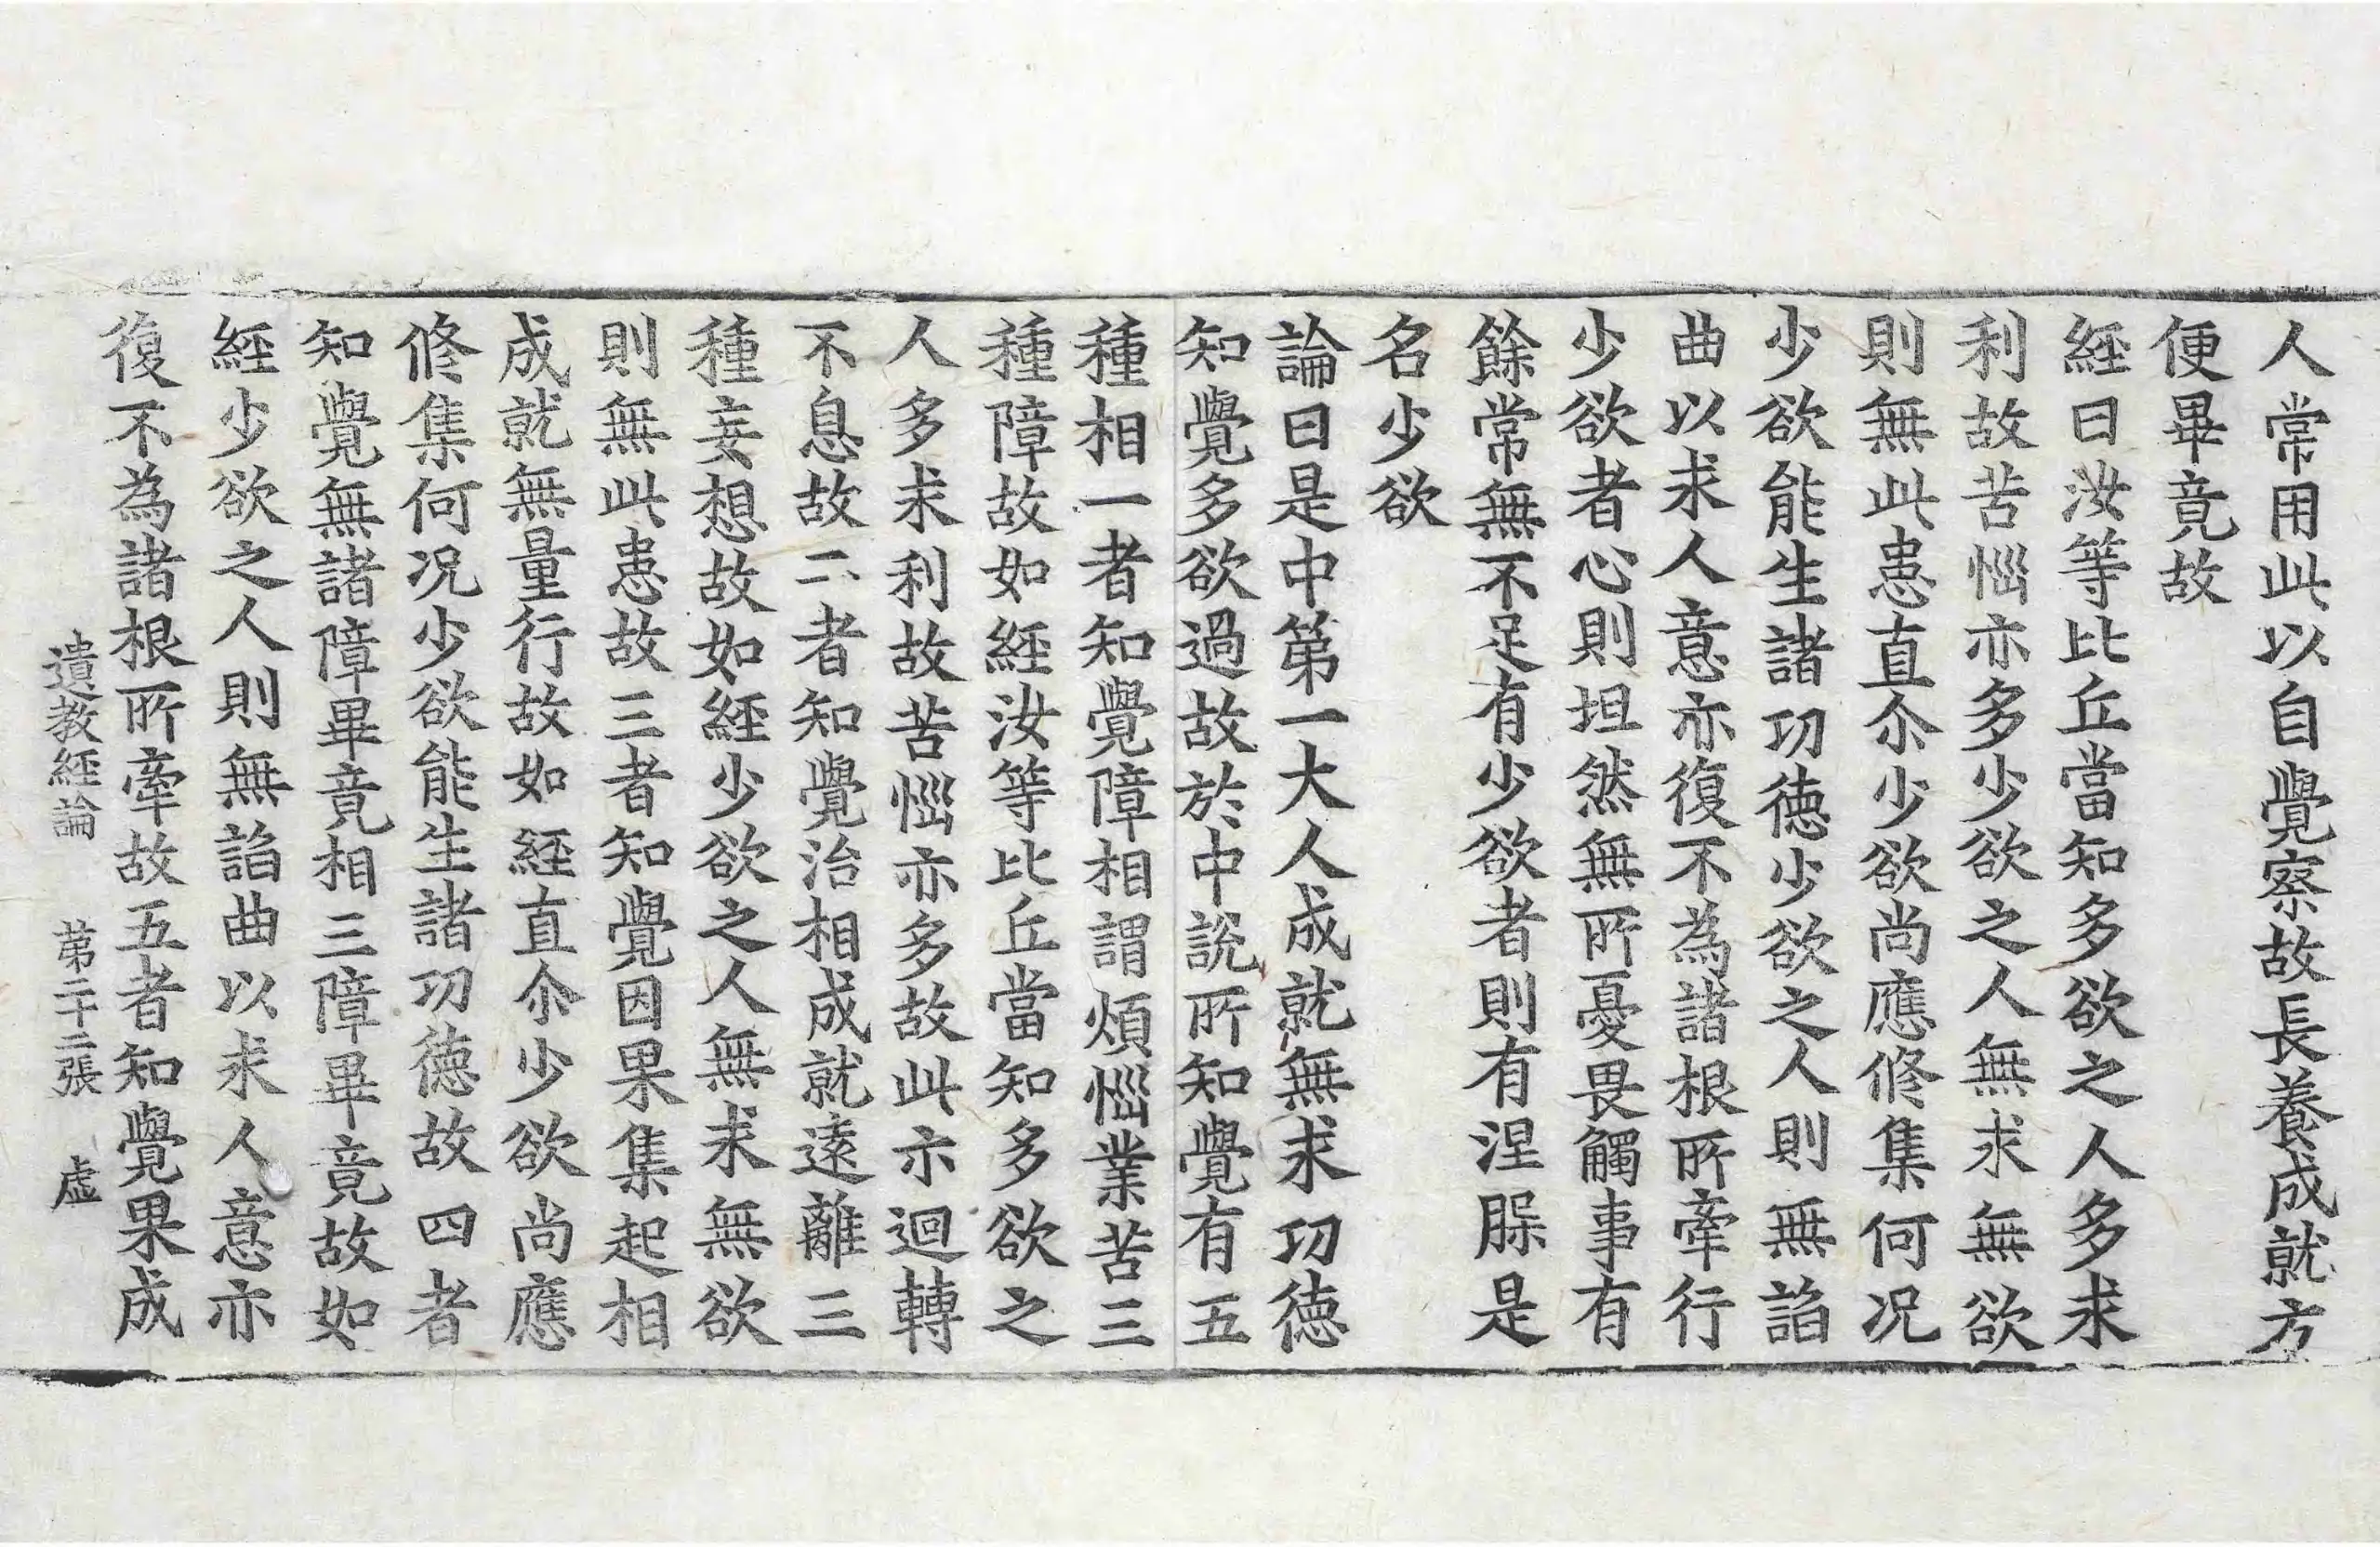 人常用此以自覺察故長養成就方
便畢竟故
經曰汝等比丘當知多欲之人多求
利故苦惱亦多少欲之人無求無欲
則無此患直尒少欲尚應修集何况
少欲能生諸功徳少欲之人則無諂
曲以求人意亦復不為諸根所牽行
少欲者心則坦然無所憂畏觸事有
餘常無不足有少欲者則有涅腂是
名少欲
論曰是中第一大人成就無求功徳
知覺多欲過故於中說所知覺有五
種相一者知覺障相謂煩惱業苦三
種障故如經汝等比丘當知多欲之
人多求利故苦惱亦多故此示迴轉
不息故二者知覺治相成就遠離三
種妄想故如經少欲之人無求無欲
則無此患故三者知覺因果集起相
成就無量行故如經直尒少欲尚應
修集何况少欲能生諸功徳故四者
知覺無諸障畢竟相三障畢竟故如
經少欲之人則無諂曲以求人意亦
復不為諸根所牽故五者知覺果成
遺教經論 第二十二張 虛